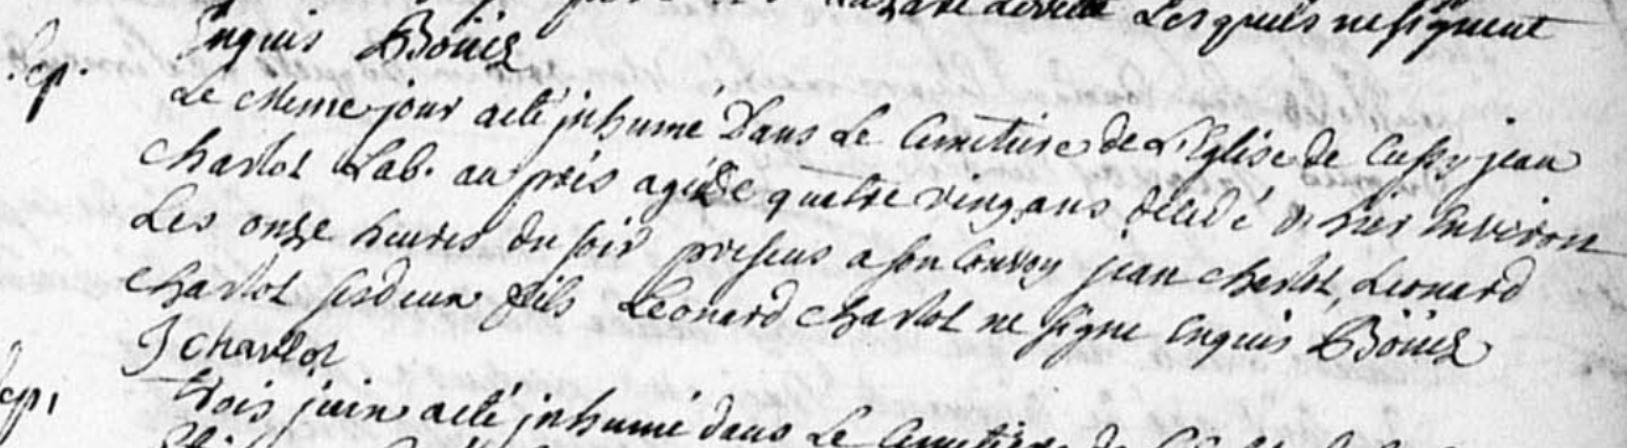 Lesquels ne signent
Enquis Boüez
Sep.
Le meme jour a eté inhumé Dans Le Cimetiere de L'Eglise de Cussy jean
charlot Lab. au pois agé de quatre vingt ans decedé d'hier Environ
Les onze heures du soir presens a son Convoy jean charlot, Leonard
charlot ses deux fils Leonard charlot ne signe Enquis Boüez
J charlot
Sep.
trois juin a eté inhumé dans Le Cimetiere de